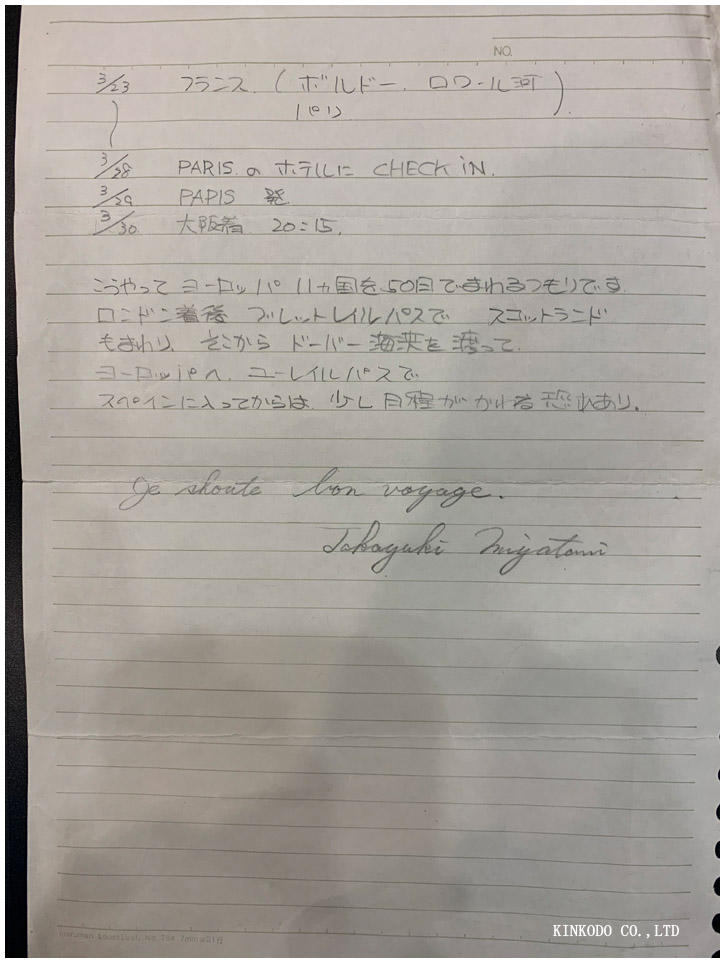 NO.
3/23 フランス.(ボルドー. ロワール河
パリ).
3/28 PARIS. の ホテルに CHECK iN.
3/29 PAPIS 発
3/30. 大阪着 20:15.
こうやって ヨーロッパ 11ヵ国を 50日で まわるつもりです.
ロンドン着後 ブリットレイルパスで スコットランド
もまわり、そこから ドーバー海峡を渡って.
ヨーロッパへ. ユーレイルパスで
スペインに入ってからは. 少し日程が かわる恐れあり.
Je shoute bon voyage.
Takayuki Miyatani
KINKODO CO.,LTD